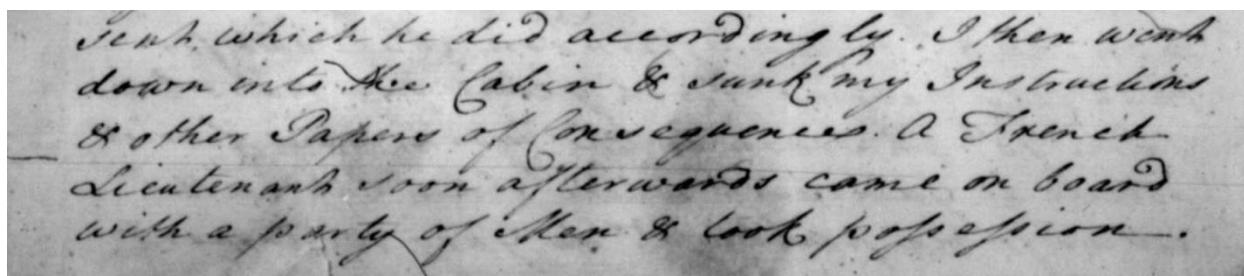 sent, which he did accordingly. I then went
down into the Cabin & sunk my Instructions
& other Papers of Consequences. A French
Lieutenant soon afterwards came on board
with a party of Men & took possession.